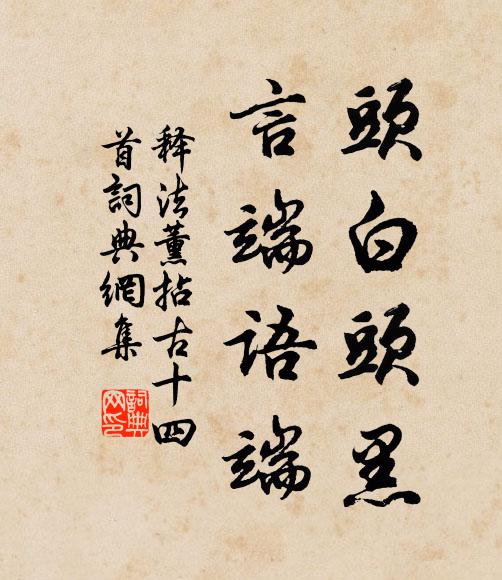 頭白頭黑
言端語端
釋法薰拈古十四
首詞典網集
詞典网印